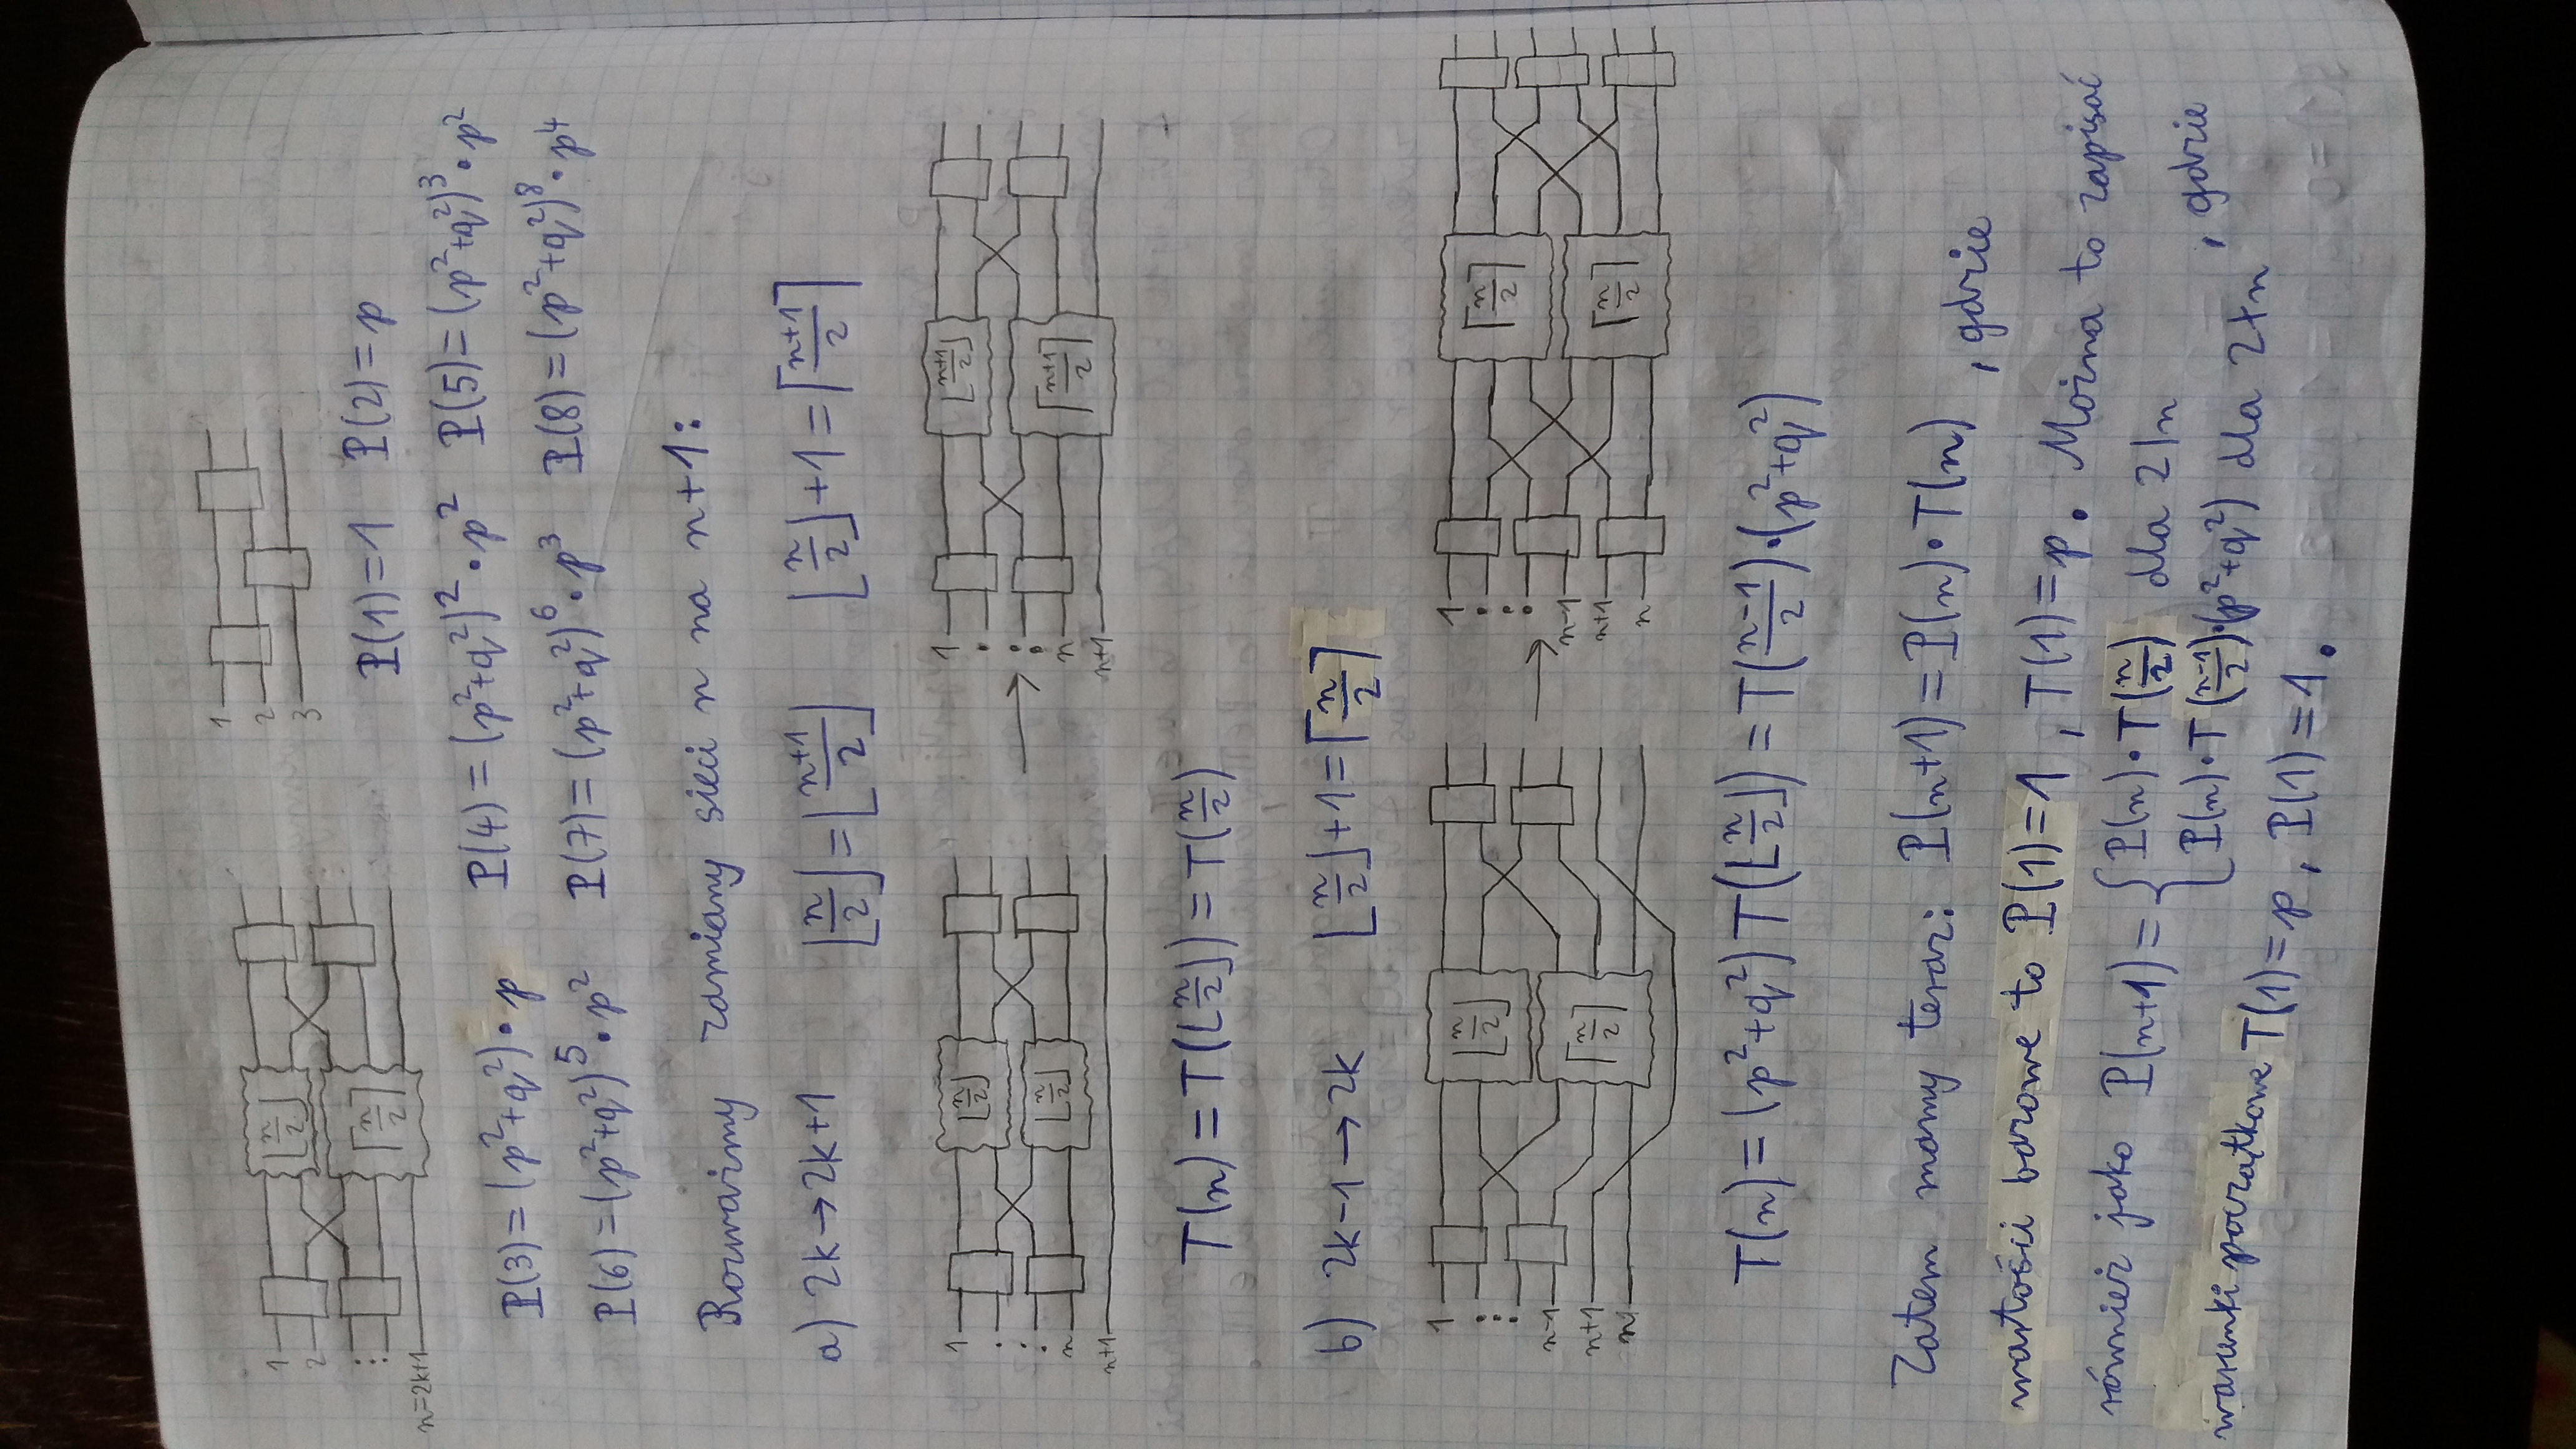 1
2
⋮
n=2k+1
⌊n/2⌋
⌈n/2⌉
1
2
3
P(1)=1 P(2)=p
P(3)=(p²+q²)·p P(4)=(p²+q²)²·p² P(5)=(p²+q²)³·p²
P(6)=(p²+q²)⁵·p² P(7)=(p²+q²)⁶·p³ P(8)=(p²+q²)⁸·p⁴
Rozważmy zamiany sieci n na n+1:
a) 2k→2k+1 ⌊n/2⌋=⌊(n+1)/2⌋ ⌊n/2⌋+1=⌈(n+1)/2⌉
1
⋮
n
n+1
⌊n/2⌋
⌊n/2⌋
→
1
⋮
n
n+1
⌊(n+1)/2⌋
⌈(n+1)/2⌉
T(n)=T(⌊n/2⌋)=T(n/2)
b) 2k-1→2k ⌊n/2⌋+1=⌈n/2⌉
1
⋮
n-1
n+1
n
⌊n/2⌋
⌈n/2⌉
→
1
⋮
n-1
n+1
n
⌈n/2⌉
⌈n/2⌉
T(n)=(p²+q²)T(⌊n/2⌋)=T((n-1)/2)·(p²+q²)
Zatem mamy teraz: P(n+1)=P(n)·T(n), gdzie
wartości bazowe to P(1)=1, T(1)=p. Można to zapisać
również jako P(n+1)={P(n)·T(n/2) dla 2|n
P(n)·T((n-1)/2)·(p²+q²) dla 2∤n, gdzie
warunki początkowe T(1)=p, P(1)=1.